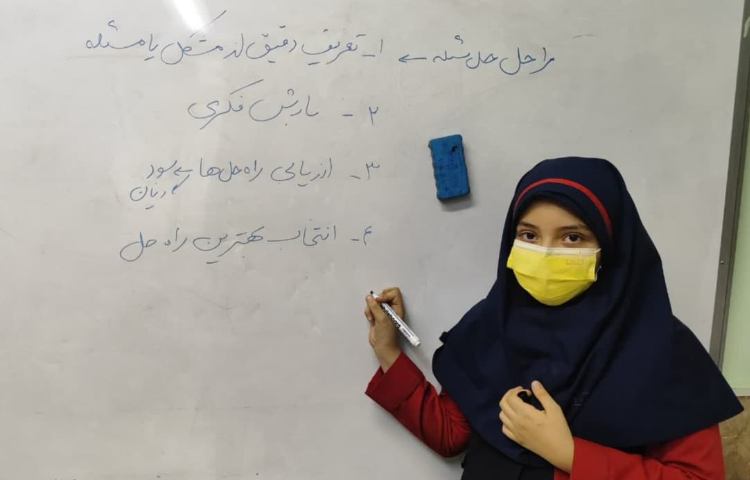 مراحل حل مسئله ← ۱- تعریف دقیق از مشکل یا مسئله
۲- بارش فکری
۳- ارزیابی راه حل‌ها سود
زیان
۴- انتخاب بهترین راه حل